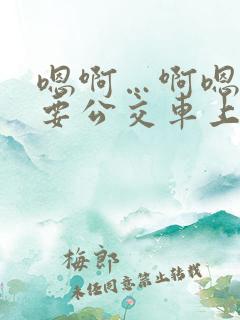 嗯啊…啊嗯
要公交车上
梅郎
未经同意禁止转载